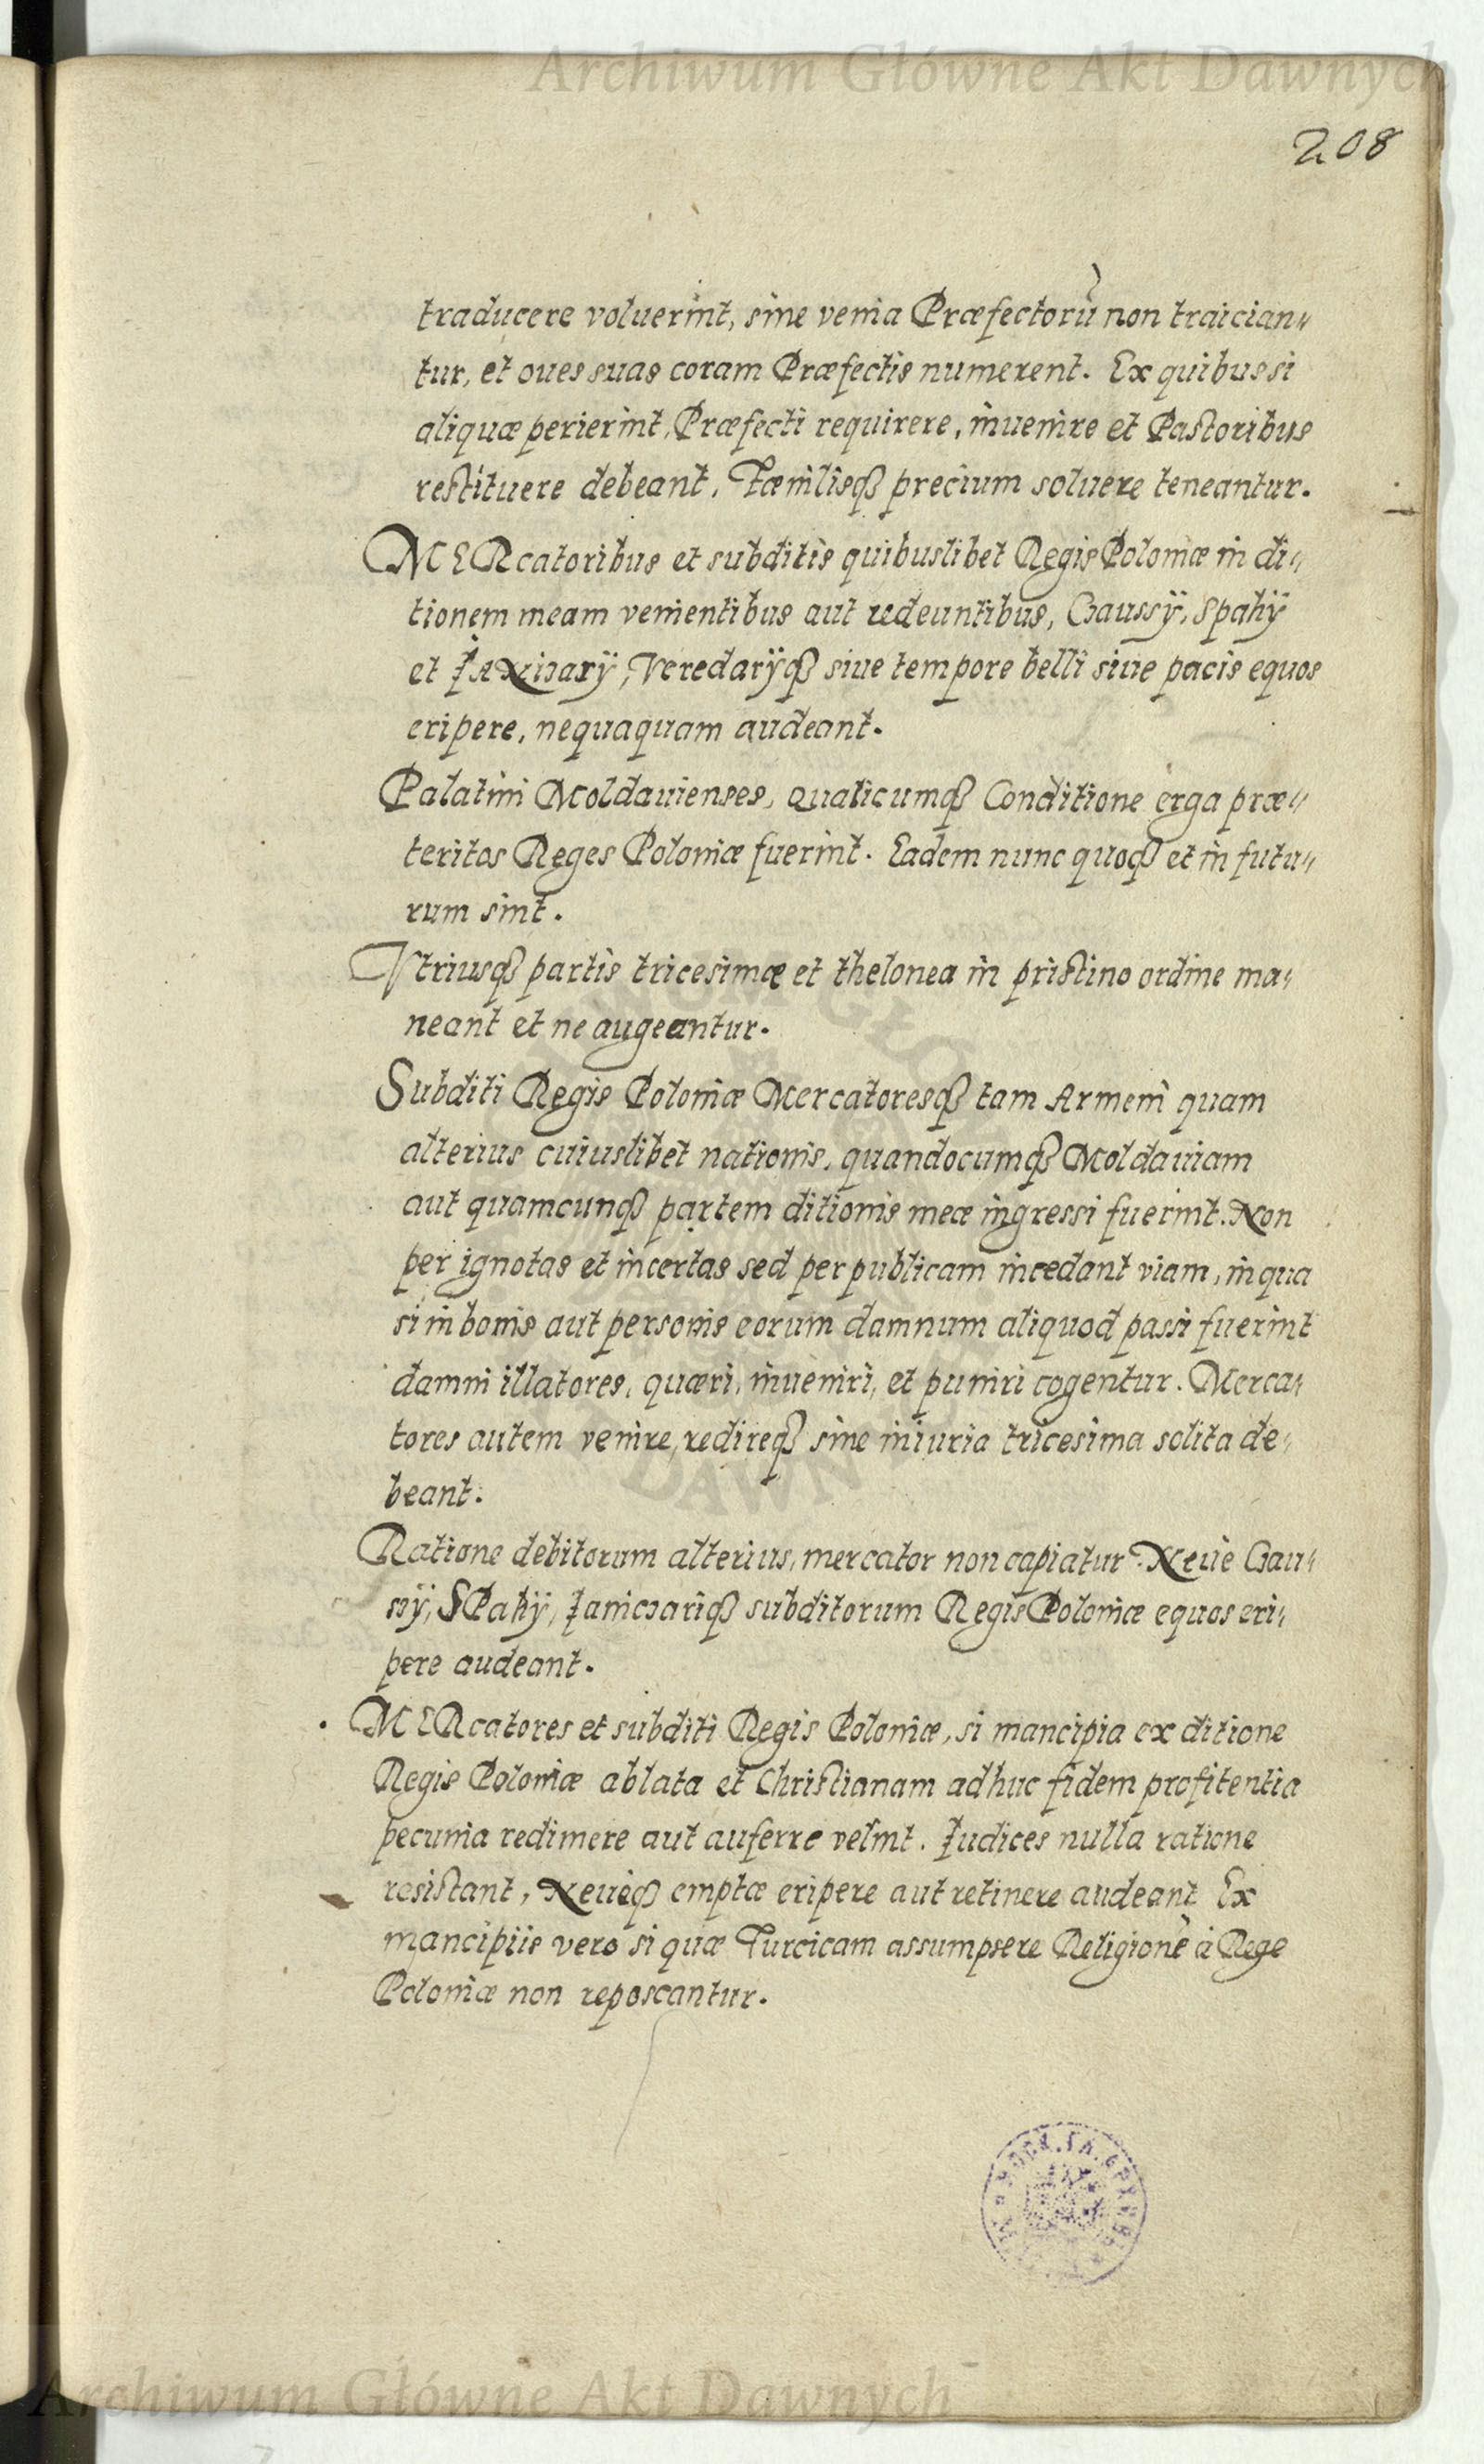 Archiwum Główne Akt Dawnych
208
traducere voluerint, sine venia Præfectorū non traician„
tur, et oues suas coram Præfectis numerent. Ex quibus si
aliquæ perierint, Præfecti requirere, inuenire et Pastoribus
restituere debeant, precium soluere teneantur.
MERcatoribus et subditis quibuslibet Regis Poloniæ in di„
tionem meam venientibus aut redeuntibus, Czaussÿ, Spahÿ
et Veredarÿqꝫ siue tempore belli siue pacis equos
eripere, nequaquam audeant.
Palatini Moldauienses, qualicumqꝫ Conditione erga præ„
teritos Reges Poloniæ fuerint. Eadem nunc quoqꝫ et in futu„
rum sint.
Vtriusqꝫ partis tricesimæ et thelonea in pristino ordine ma„
neant et ne augeantur.
Subditi Regis Poloniæ Mercatoresqꝫ tam Armeni quam
alterius cuiuslibet nationis, quandocumqꝫ Moldauiam
aut quamcunqꝫ partem ditionis meæ ingressi fuerint. Non
per ignotas et incertas sed per publicam incedant viam, in qua
si in bonis aut personis eorum damnum aliquod passi fuerint
damni illatores, quæri, inueniri, et puniri cogentur. Merca„
tores autem venire, redireqꝫ sine iniuria tricesima solita de„
beant.
Ratione debitorum alterius, mercator non capiatur. Neue Czau„
ssÿ, SPahÿ, Ianiczariqꝫ subditorum Regis Poloniæ equos eri„
pere audeant.
MERcatores et subditi Regis Poloniæ, si mancipia ex ditione
Regis Poloniæ ablata et Christianam adhuc fidem profitentia
pecunia redimere aut auferre velint. Iudices nulla ratione
resistant, Neueqꝫ emptæ eripere aut retinere audeant Ex
mancipiis vero si quæ Turcicam assumpsere Religionē à Rege
Poloniæ non reposcantur.
Archiwum Główne Akt Dawnych